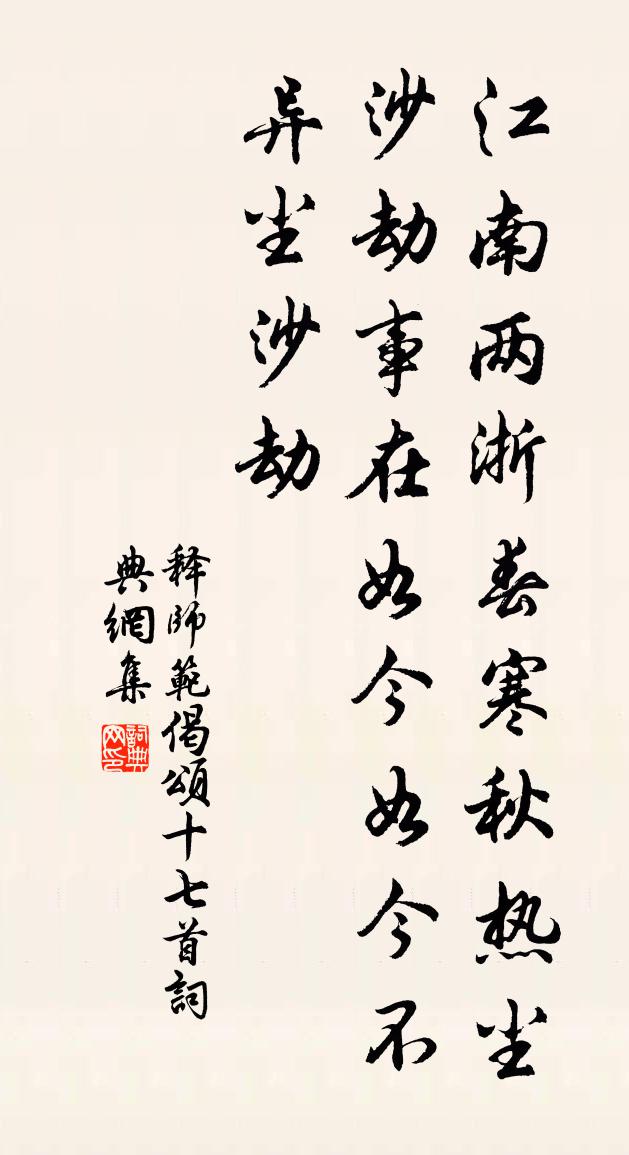 江南两浙春寒秋热尘
沙劫事在如今如今不
异尘沙劫
释師範偈頌十七首詞
典網集
詞典网印